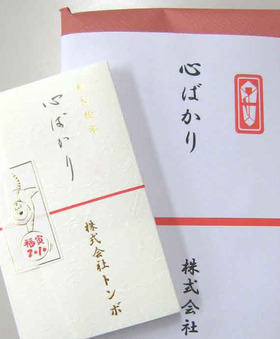 心ばかり
福寅
2010
株式会社トンボ
心ばかり
株式会社